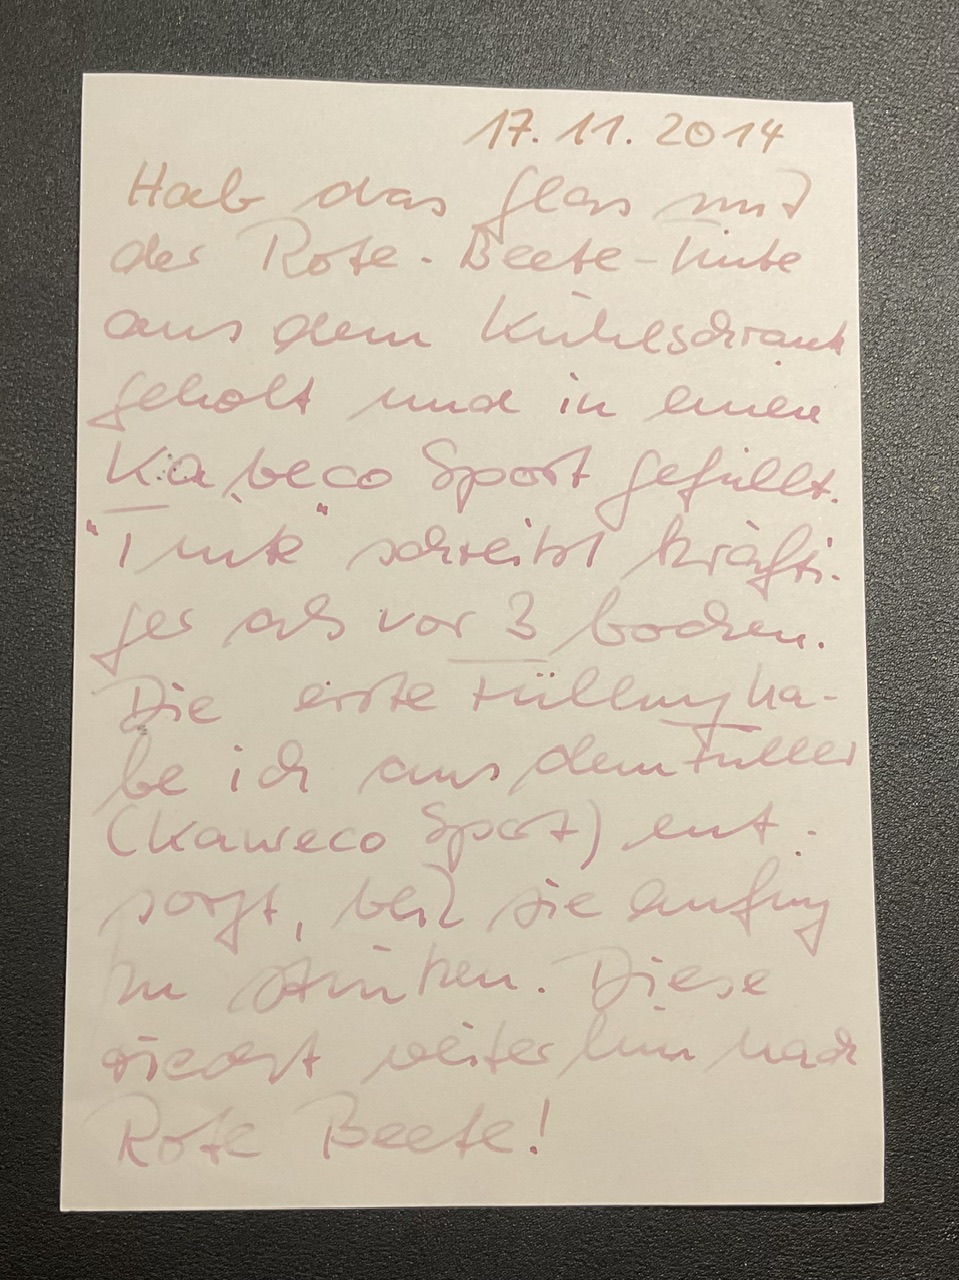 17.11.2014
Hab das Glas mit
der Rote-Beete-Tinte
aus dem Kühlschrank
geholt und in einen
Kaweco Sport gefüllt.
"Tinte" schreibt kräfti-
ger als vor 3 Wochen.
Die erste Füllung ha-
be ich aus dem Füller
(Kaweco Sport) ent-
sorgt, weil sie anfing
zu stinken. Diese
riecht weiterhin nach
Rote Beete!